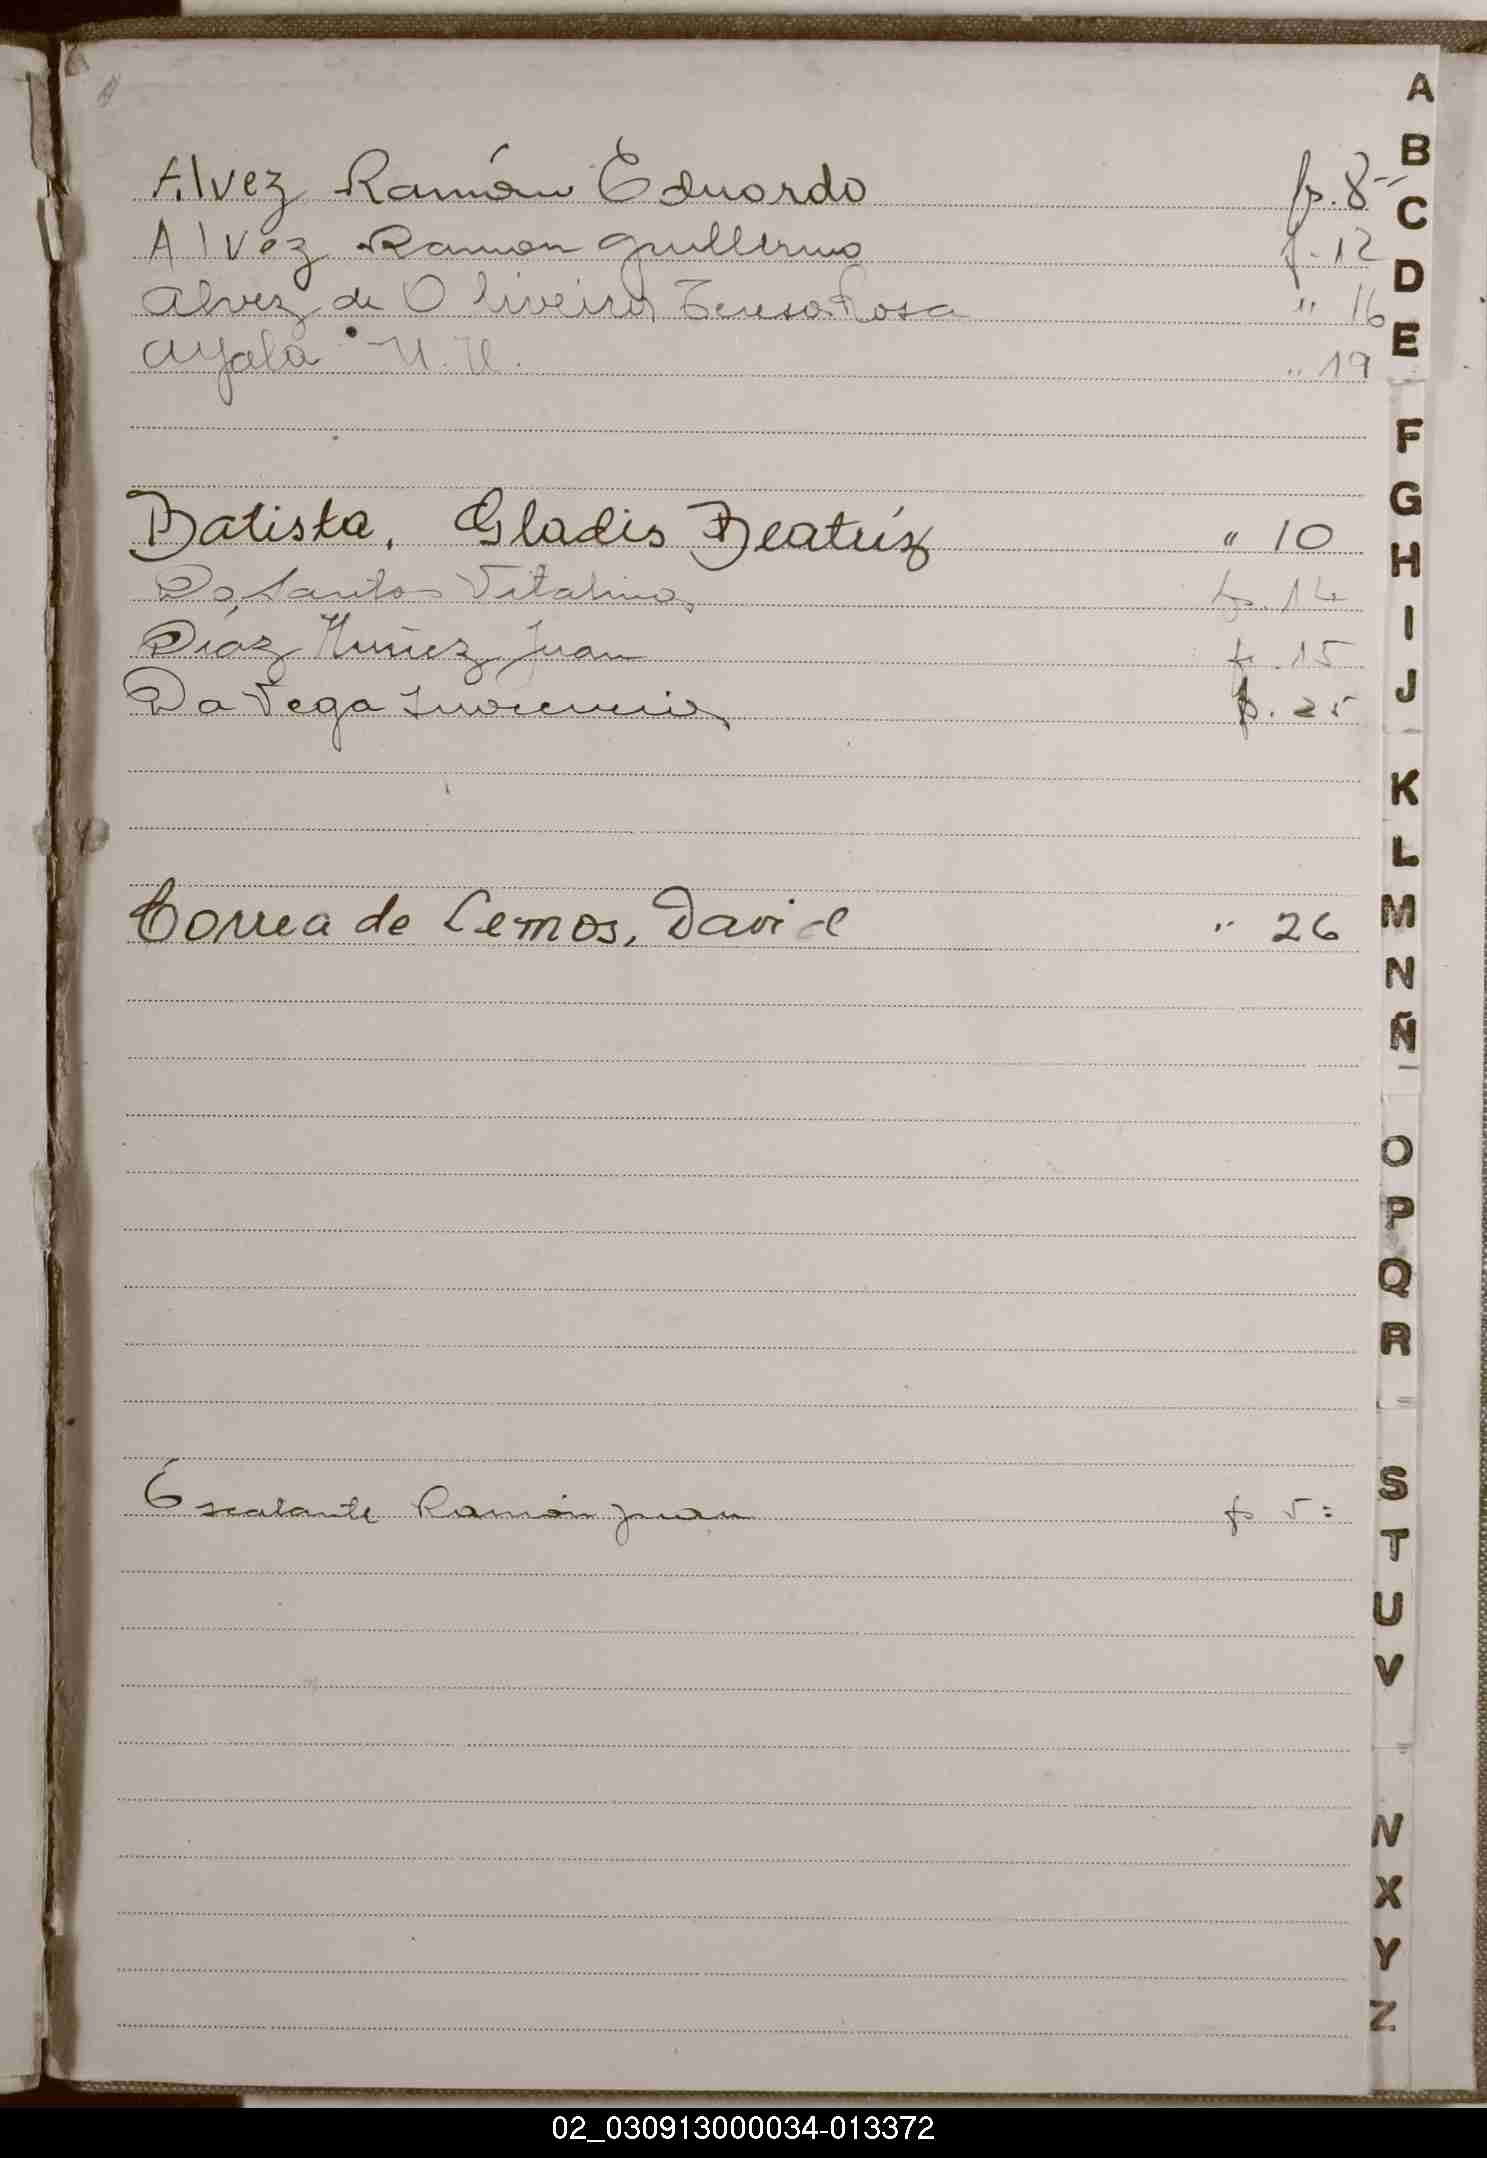 Alvez Ramón Eduardo fs. 8
Alvez Ramon Guillermo f. 12
Alvez de Oliveira Teresa Rosa " 16
Ayala N.N. " 19
Batista, Gladis Beatríz " 10
Do Santos Vitalino fs. 14
Díaz Nuñez Juan fs. 15
Da Vega Inocencio fs. 25
Correa de Lemos, David " 26
Escalante Ramón Juan fs 5=
A
B
C
D
E
F
G
H
I
J
K
L
M
N
Ñ
O
P
Q
R
S
T
U
V
X
Y
Z
02_030913000034-013372